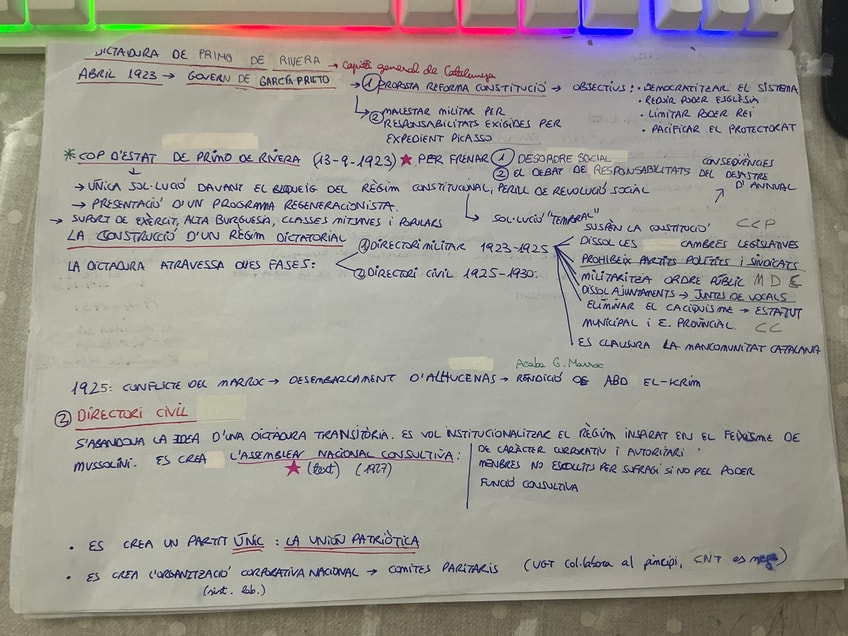 DICTADURA DE PRIMO DE RIVERA → Capità general de Catalunya
ABRIL 1923 → GOVERN DE GARCÍA-PRIETO → ① PROPOSTA REFORMA CONSTITUCIÓ → OBJECTIUS: • DEMOCRATITZAR EL SISTEMA
• REDUIR PODER ESGLÉSIA
• LIMITAR PODER REI
• PACIFICAR EL PROTECTORAT
→ ② MALESTAR MILITAR PER
RESPONSABILITATS EXIGIDES PER
EXPEDIENT PICASSO
* COP D'ESTAT DE PRIMO DE RIVERA (13-9-1923) ★ PER FRENAR ① DESORDRE SOCIAL
② EL DEBAT DE RESPONSABILITATS DEL DESASTRE
D'ANNUAL
CONSEQÜÈNCIES
→ ÚNICA SOL·LUCIÓ DAVANT EL BLOQUEIG DEL RÈGIM CONSTITUCIONAL, PERILL DE REVOLUCIÓ SOCIAL
→ PRESENTACIÓ D'UN PROGRAMA REGENERACIONISTA.
→ SOL·LUCIÓ "TEMPORAL"
→ SUPORT DE EXÈRCIT, ALTA BURGUESIA, CLASSES MITJANES I POPULARS
LA CONSTRUCCIÓ D'UN RÈGIM DICTATORIAL
LA DICTADURA ATRAVESSA DUES FASES:
① DIRECTORI MILITAR 1923-1925
② DIRECTORI CIVIL 1925-1930
SUSPÈN LA CONSTITUCIÓ CCP
DISSOL LES CAMBRES LEGISLATIVES
PROHIBEIX PARTITS POLÍTICS I SINDICATS
MILITARITZA ORDRE PÚBLIC MDE
DISSOL AJUNTAMENTS → JUNTES DE VOCALS
ELIMINAR EL CACIQUISME → ESTATUT
MUNICIPAL I E. PROVINCIAL. CC
ES CLAUSURA LA MANCOMUNITAT CATALANA
Acaba G. Marroc
1925: CONFLICTE DEL MARROC → DESEMBARCAMENT D'ALHUCENAS → RENDICIÓ DE ABD EL-KRIM
② DIRECTORI CIVIL
S'ABANDONA LA IDEA D'UNA DICTADURA TRANSITÒRIA. ES VOL INSTITUCIONALITZAR EL RÈGIM INSPIRAT EN EL FEIXISME DE
MUSSOLINI. ES CREA L'ASSEMBLEA NACIONAL CONSULTIVA:
★ (text) (1927)
DE CARÀCTER CORPORATIU I AUTORITARI
MENBRES NO ESCOLLITS PER SUFRAGI SI NO PEL PODER
FUNCIÓ CONSULTIVA
• ES CREA UN PARTIT ÚNIC: LA UNIÓN PATRIÒTICA
• ES CREA L'ORGANITZACIÓ CORPORATIVA NACIONAL → COMITES PARITARIS (UGT col·labora al pincipi, CNT es nega)
(sist. lab.)